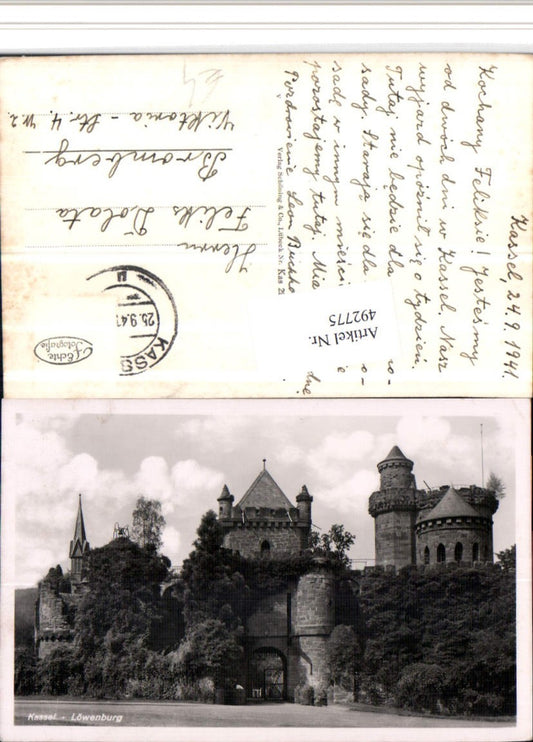 Kassel, 24.9.1941.
Kochany Feliksie! Jesteśmy
od dwóch dni w Kassel. Nasz
wyjazd opóźnił się o tydzień.
Tutaj nie będzie dla ro-
sady. Starają się dla o-
sadę w innym mieście
pozostajemy tutaj. Mie dnę
Pozdrowienie Leon
Verlag Schöning & Co., Lübeck Nr. Kas 21
Herrn
Feliks Dolata
Bromberg
Viktoria-Str. 4, W. 2
KASS
26.9.41
Echte Fotografie
Artikel Nr.
492775
Kassel - Löwenburg